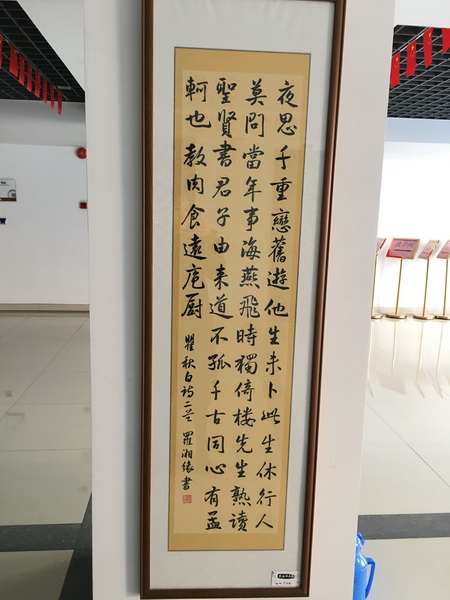 夜思千重戀舊遊他生未卜此生休行人
莫問當年事海燕飛時獨倚樓先生熟讀
聖賢書君子由来道不孤千古同心有孟
軻也教肉食遠庖厨
瞿秋白詩二首 羅湘緣書